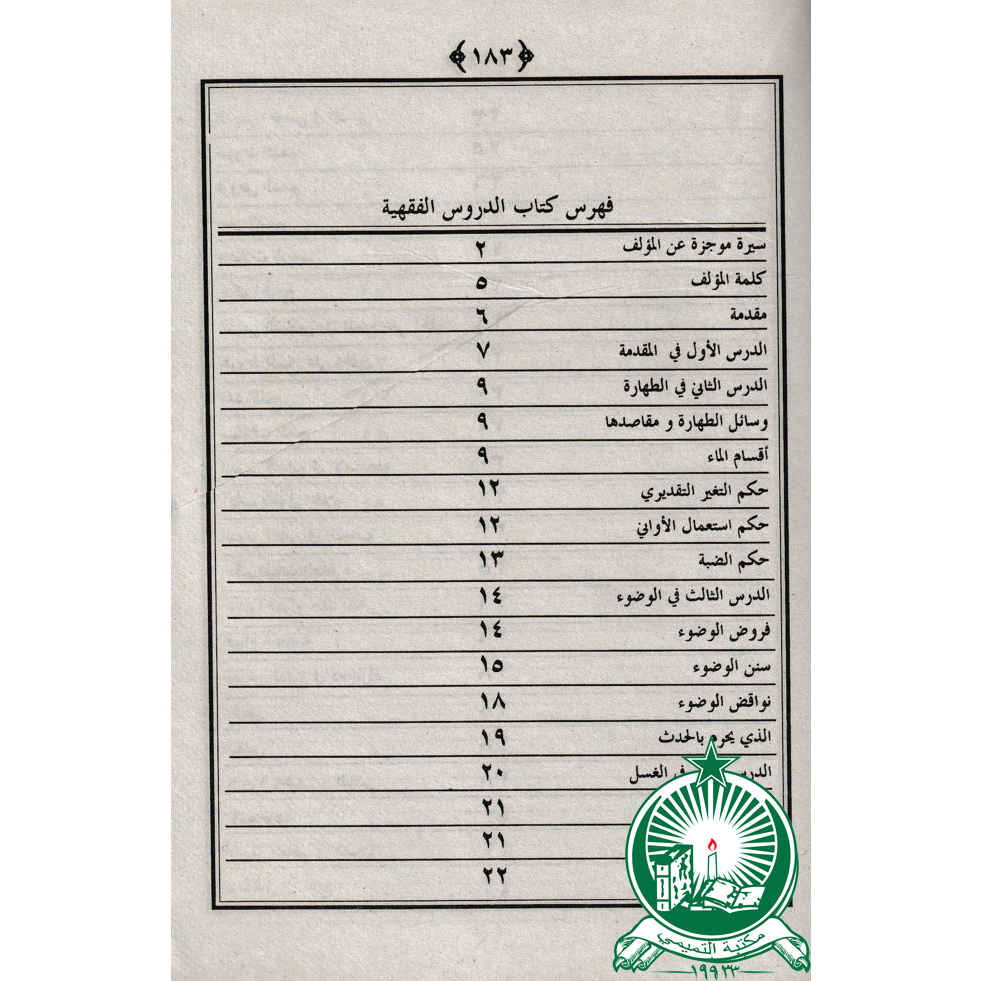 ﴿١٨٣﴾
فهرس كتاب الدروس الفقهية
سيرة موجزة عن المؤلف ٢
كلمة المؤلف ٥
مقدمة ٦
الدرس الأول في المقدمة ٧
الدرس الثاني في الطهارة ٩
وسائل الطهارة و مقاصدها ٩
أقسام الماء ٩
حكم التغير التقديري ١٢
حكم استعمال الأواني ١٢
حكم الضبة ١٣
الدرس الثالث في الوضوء ١٤
فروض الوضوء ١٤
سنن الوضوء ١٥
نواقض الوضوء ١٨
الذي يحرم بالحدث ١٩
الدرس في الغسل ٢٠
٢١
٢١
٢٢
مكتبة التميمي
١٩٩٣٣